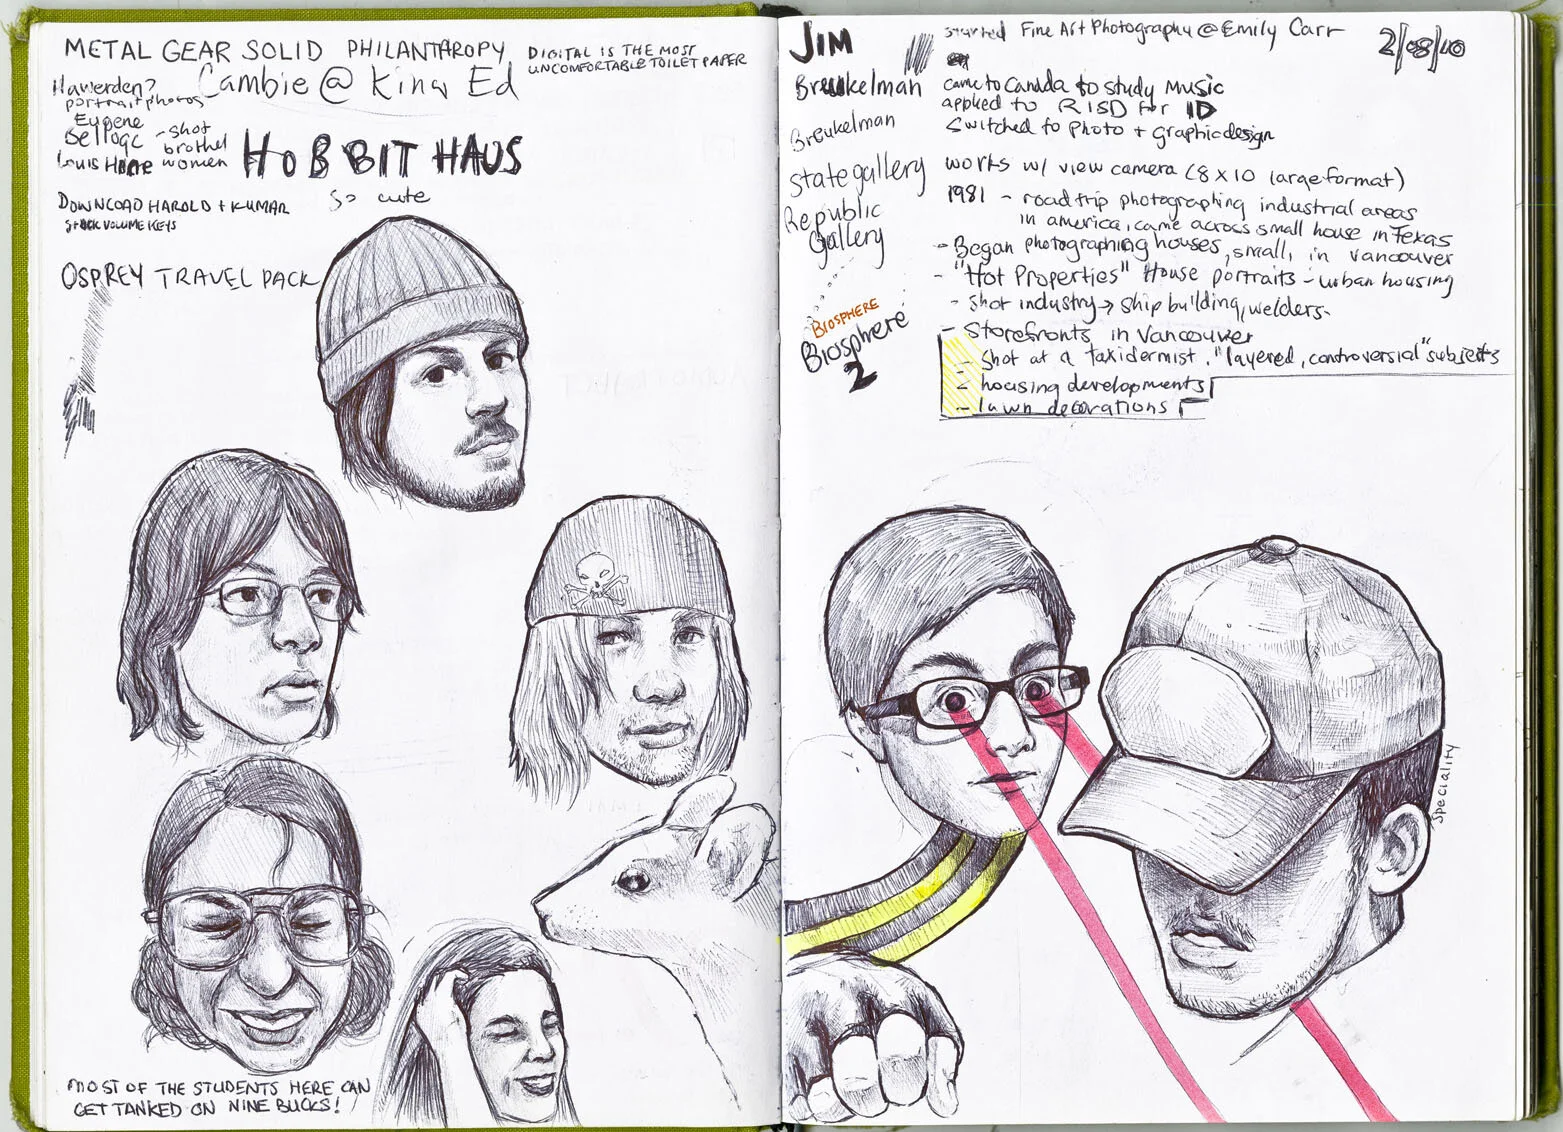 METAL GEAR SOLID PHILANTHROPY
DIGITAL IS THE MOST
UNCOMFORTABLE TOILET PAPER
Cambie @ King Ed
Hawerden?
portrait photos
Eugene
Bellogc - shot
brothel
Louis Hine women
HOBBIT HAUS
so cute
DOWNLOAD HAROLD + KUMAR
STUCK VOLUME KEYS
OSPREY TRAVEL PACK
MOST OF THE STUDENTS HERE CAN
GET TANKED ON NINE BUCKS!
JIM
Breukelman
Breukelman
state gallery
Republic
Gallery
BIOSPHERE
Biosphere
2
started Fine Art Photography @ Emily Carr
2/08/10
came to Canada to study Music
applied to RISD for ID
Switched to Photo + graphic design
works w/ view camera (8 x 10 large format)
1981 - road trip photographing industrial areas
in america, came across small house in Texas
- Began photographing houses, small, in Vancouver
- "Hot Properties" House portraits - urban housing
- Shot industry → ship building, welders.
- Storefronts in Vancouver
- Shot at a taxidermist. "layered, controversial" subjects
- housing developments
- lawn decorations
Speciality